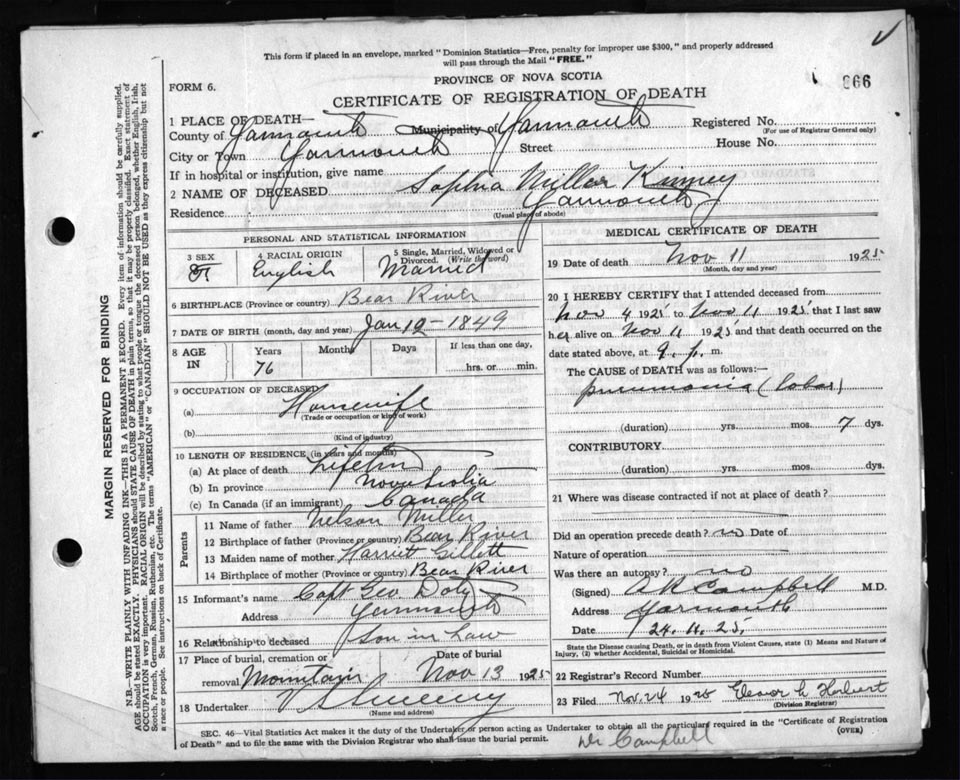 This form if placed in an envelope, marked "Dominion Statistics—Free, penalty for improper use $300," and properly addressed
will pass through the Mail "FREE."
PROVINCE OF NOVA SCOTIA
FORM 6.
866
CERTIFICATE OF REGISTRATION OF DEATH
1 PLACE OF DEATH—
County of Yarmouth Municipality of Yarmouth Registered No.
(For use of Registrar General only)
City or Town Yarmouth Street House No.
If in hospital or institution, give name
2 NAME OF DECEASED Sophia Miller Kinney
Residence Yarmouth
(Usual place of abode)
PERSONAL AND STATISTICAL INFORMATION
3 SEX F
4 RACIAL ORIGIN English
5 Single, Married, Widowed or Divorced. (Write the word) Married
6 BIRTHPLACE (Province or country) Bear River
7 DATE OF BIRTH (month, day and year) Jan 12 - 1849
8 AGE IN Years Months Days If less than one day,
76 hrs. or min.
9 OCCUPATION OF DECEASED
(a) Housewife
(Trade or occupation or kind of work)
(b)
(Kind of industry)
10 LENGTH OF RESIDENCE (in years and months)
(a) At place of death Lifetime
(b) In province Nova Scotia
(c) In Canada (if an immigrant) Canada
Parents
11 Name of father Nelson Miller
12 Birthplace of father (Province or country) Bear River
13 Maiden name of mother Harriett Gillett
14 Birthplace of mother (Province or country) Bear River
15 Informant's name Capt Geo Doty
Address Yarmouth
16 Relationship to deceased Son in Law
17 Place of burial, cremation or removal Mountain Date of burial Nov 13 1925
18 Undertaker V S Sweeny
(Name and address)
MEDICAL CERTIFICATE OF DEATH
19 Date of death Nov 11 1925
(Month, day and year)
20 I HEREBY CERTIFY that I attended deceased from
Nov 4 1925 to Nov 11 1925 that I last saw
her alive on Nov 11 1925 and that death occurred on the
date stated above, at 9. p. m.
The CAUSE of DEATH was as follows:—
pneumonia (lobar)
(duration) yrs. mos. 7 dys.
CONTRIBUTORY.
(duration) yrs. mos. dys.
21 Where was disease contracted if not at place of death?
Did an operation precede death? no Date of
Nature of operation
Was there an autopsy? no
(Signed) A R Campbell M.D.
Address Yarmouth
Date 24. 11. 25.
State the Disease causing Death, or in death from Violent Causes, state (1) Means and Nature of
Injury, (2) whether Accidental, Suicidal or Homicidal.
22 Registrar's Record Number
23 Filed Nov. 24 1925 Herbert
(Division Registrar)
SEC. 46—Vital Statistics Act makes it the duty of the Undertaker or person acting as Undertaker to obtain all the particulars required in the "Certificate of Registration
of Death" and to file the same with the Division Registrar who shall issue the burial permit. (OVER)
Dr Campbell
MARGIN RESERVED FOR BINDING
N.B.—WRITE PLAINLY WITH UNFADING INK—THIS IS A PERMANENT RECORD. Every item of information should be carefully supplied.
AGE should be stated EXACTLY. PHYSICIANS should STATE CAUSE OF DEATH in plain terms, so that it may be properly classified. Exact statement of
OCCUPATION is very important. RACIAL ORIGIN will be described by stating to what people or tongue the deceased person belonged, whether English, Irish,
Scotch, French, German, Russian, Ruthenian, etc. The terms "AMERICAN" or "CANADIAN" SHOULD NOT BE USED as they express citizenship but not
a race or people. See instructions on back of Certificate.